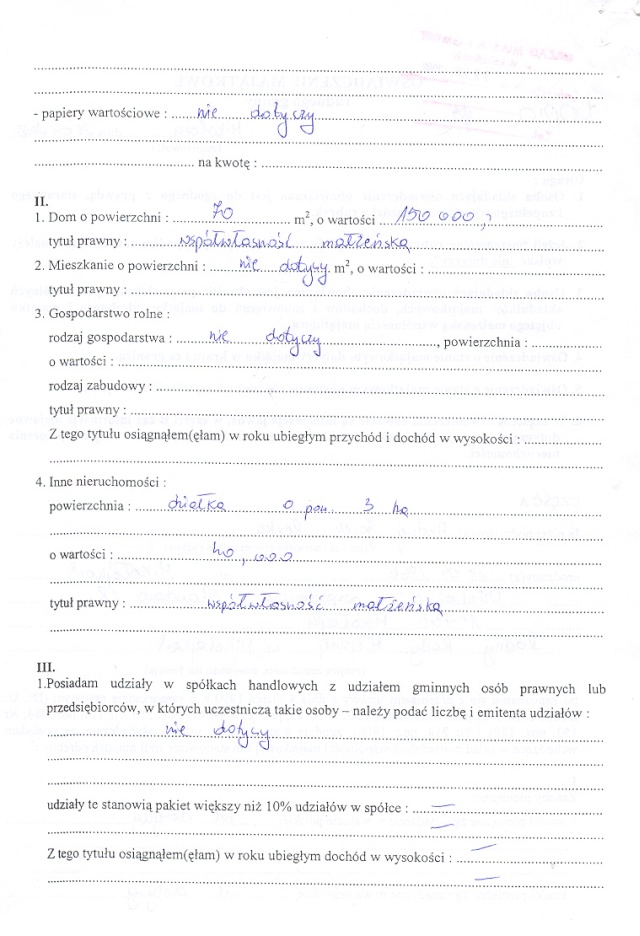 - papiery wartościowe : ......nie dotyczy
na kwotę :
II.
1. Dom o powierzchni : 70 m², o wartości 150 000,
tytuł prawny : współwłasność małżeńska
2. Mieszkanie o powierzchni : nie dotyczy m², o wartości :
tytuł prawny :
3. Gospodarstwo rolne :
rodzaj gospodarstwa : nie dotyczy, powierzchnia :
o wartości :
rodzaj zabudowy :
tytuł prawny :
Z tego tytułu osiągnąłem(ęłam) w roku ubiegłym przychód i dochód w wysokości :
4. Inne nieruchomości :
powierzchnia : działka o pow. 3 ha
o wartości : 40,000
tytuł prawny : współwłasność małżeńska
III.
1.Posiadam udziały w spółkach handlowych z udziałem gminnych osób prawnych lub
przedsiębiorców, w których uczestniczą takie osoby – należy podać liczbę i emitenta udziałów :
nie dotyczy
udziały te stanowią pakiet większy niż 10% udziałów w spółce : —
—
Z tego tytułu osiągnąłem(ęłam) w roku ubiegłym dochód w wysokości : —
—